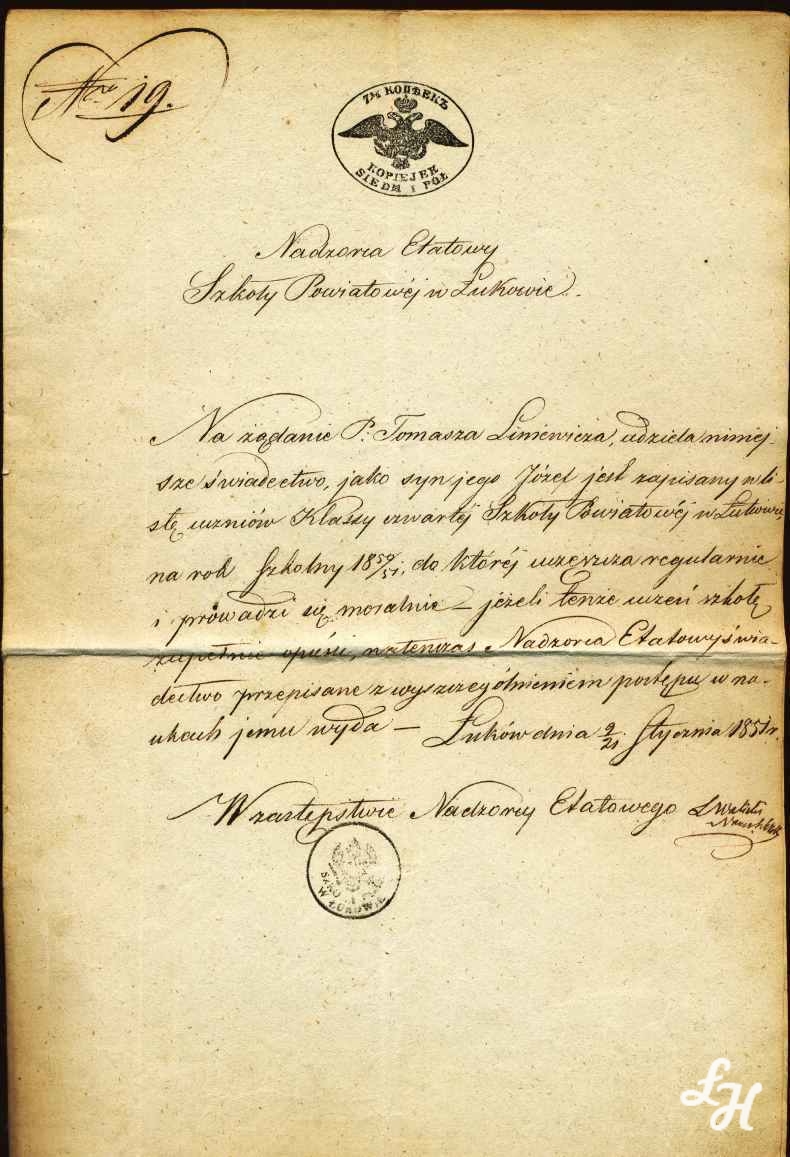 Nro 19.
7½ КОПѢЕКЪ
KOPIEJEK
SIEDM I PÓŁ
Nadzorca Etatowy
Szkoły Powiatowéj w Łukowie.
Na żądanie P. Tomasza Liniewicza, udziela niniej-
sze świadectwo, jako syn jego Józef jest zapisany w li-
stę uczniów Klassy czwartéj Szkoły Powiatowéj w Łukowie,
na rok Szkolny 1850/51, do któréj uczęszcza regularnie
i prowadzi się moralnie – jeżeli tenże uczeń szkołę
zupełnie opuści, natenczas Nadzorca Etatowy świa-
dectwo przepisane z wyszczególnieniem postępu w na-
ukach jemu wyda – Łuków dnia 9/21 Stycznia 1851 r.
W zastępstwie Nadzorcy Etatowego
W ŁUKOWIE
ŁH